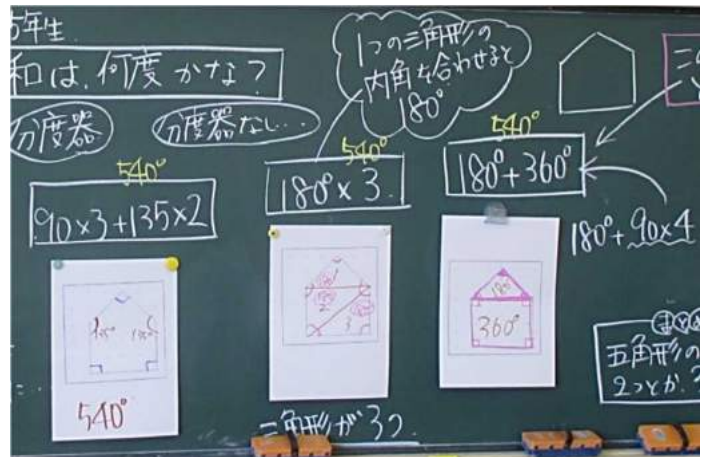 5年生
和は、何度かな？
分度器
分度器なし…
1つの三角形の
内角を合わせると
180°
540°
90×3+135×2
540°
180°×3
540°
180°+360°
180°+90×4
135°
135°
540°
180°
1
2
3
三角形が3つ
180°
360°
まとめ
五角形の
2つとか、